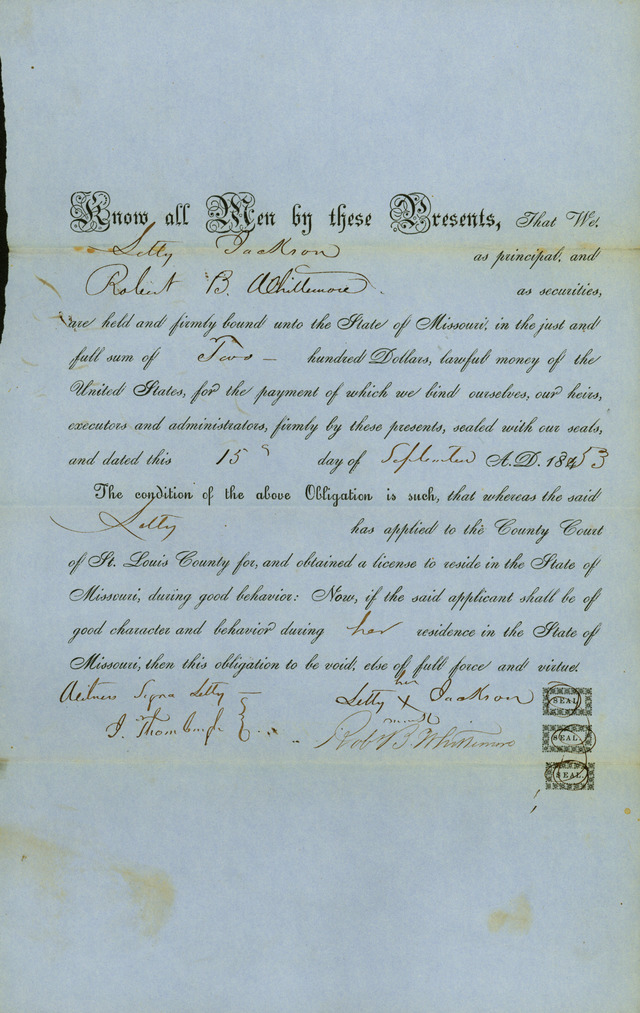 Know all Men by these Presents, That We,
Letty Jackson as principal, and
Robert B. Whittemore as securities,
are held and firmly bound unto the State of Missouri, in the just and
full sum of Two — hundred Dollars, lawful money of the
United States, for the payment of which we bind ourselves, our heirs,
executors and administrators, firmly by these presents, sealed with our seals,
and dated this 15 day of September A.D. 1853
The condition of the above Obligation is such, that whereas the said
Letty has applied to the County Court
of St. Louis County for, and obtained a license to reside in the State of
Missouri, during good behavior: Now, if the said applicant shall be of
good character and behavior during her residence in the State of
Missouri, then this obligation to be void, else of full force and virtue.
her
Witness Signa Letty — Letty X Jackson SEAL
mark
J. Thornburgh Rob B. Whittemore SEAL
SEAL